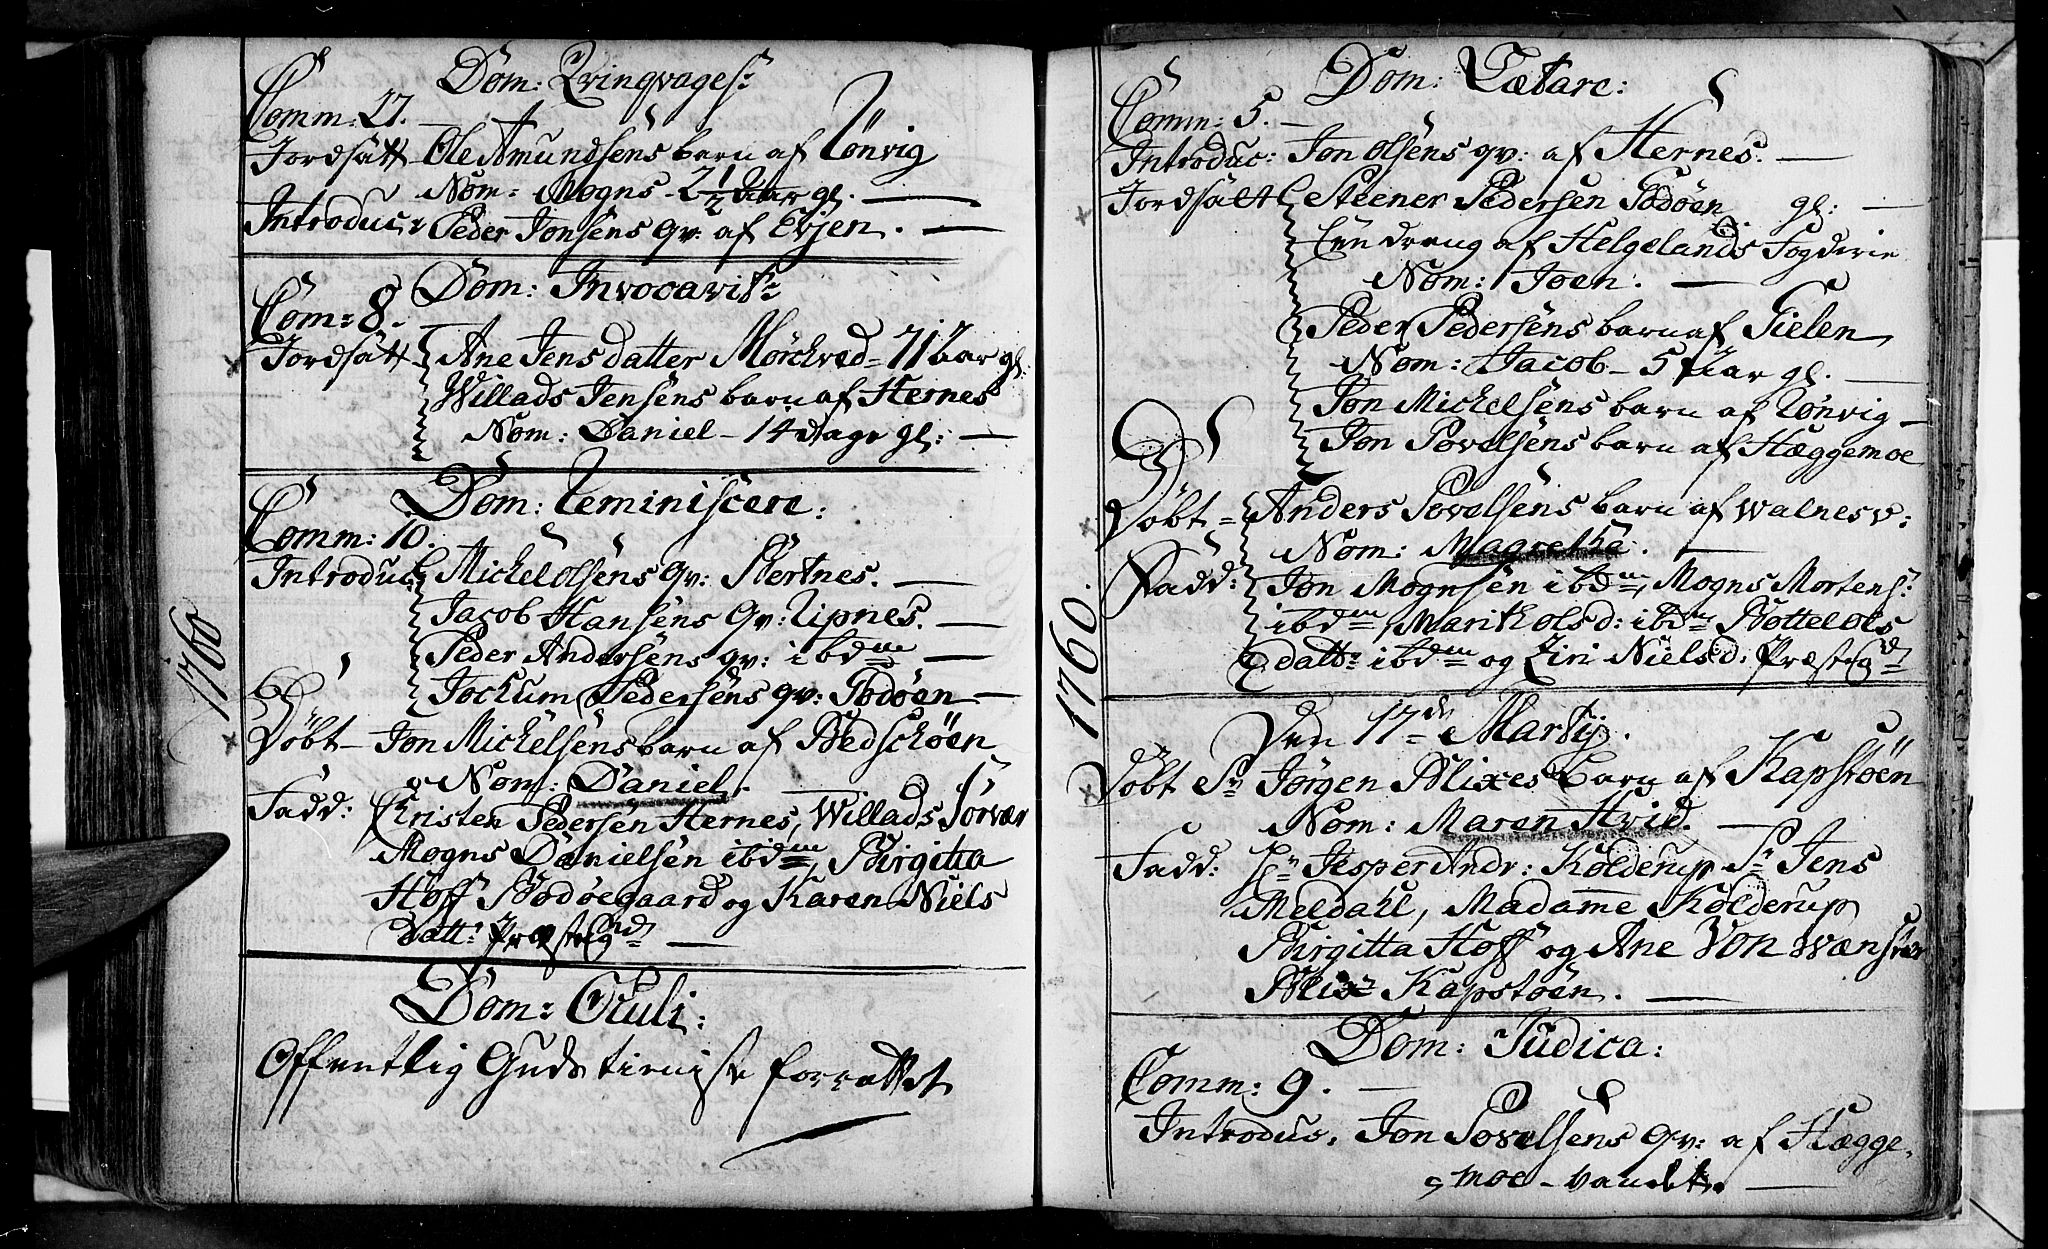 1760
Dom: Qvinqvages:
Comm: 27. —
Jordsatt Ole Amundsens barn af Rønvig
Nom: Mogns - 2 1/2 Aar gl. —
Introduc: Peder Jonsens qv: af Evjen. —
Dom: Invocavit:
Com: 8. —
Jordsatt Ane Jensdatter Mørckved - 71 1/2 aar gl:
Willads Jensens barn af Hernes
Nom: Daniel - 14 dage gl: —
Dom: Reminiscere:
Comm: 10.
Introduc: Michel Olsens qv: Bertnes. —
Jacob Hansens qv: Ripnes. —
Peder Andersens qv: ibdm —
Jochum Pedersens qv: Godøen —
Døbt - Jon Michelsens barn af Bedschøen
Nom: Daniel. —
Fadd: Christen Pedersen Hernes, Willads Sørvær
Mogns Danielsen ibdm, Birgitta
Hoff Bodøegaard og Karen Niels
Datt: Præstegd —
Dom: Oculi:
Offentlig Gudstieniste forrettet
1760.
Dom: Lætare:
Comm: 5. —
Introduc: Jon Olsens qv: af Hernes. —
Jordsatt Steener Pedersen Godøen gl: —
Een dreng af Helgelands Fogderie
Nom: Joen. —
Peder Pedersens barn af Fielen
Nom: Jacob - 5 Aar gl. —
Jon Michelsens barn af Rønvig —
Jon Povelsens barn af Hæggemoe
Døbt = Anders Povelsens barn af Walnesv:
Nom: Magrethe. —
Fadd: Jon Mognsen ibdm, Mogns Mortens:
ibdm, Marith Olsd: ibdm Bottel Ols
datt: ibdm og Ziri Nielsd: Præstegd
Den 17de Martij.
Døbt Sr Jørgen Blixes Barn af Kapstøen
Nom: Maren Hvid. —
Fadd: Hr Jesper Andr: Kolderup Sr Jens
Meldahl, Madame Kolderup
Birgitta Hoff og Ane Von Wænster
Blix Kapstøen. —
Dom: Judica:
Comm: 9. —
Introduc. Jon Povelsens qv: af Hægge,
moe - vandet. —